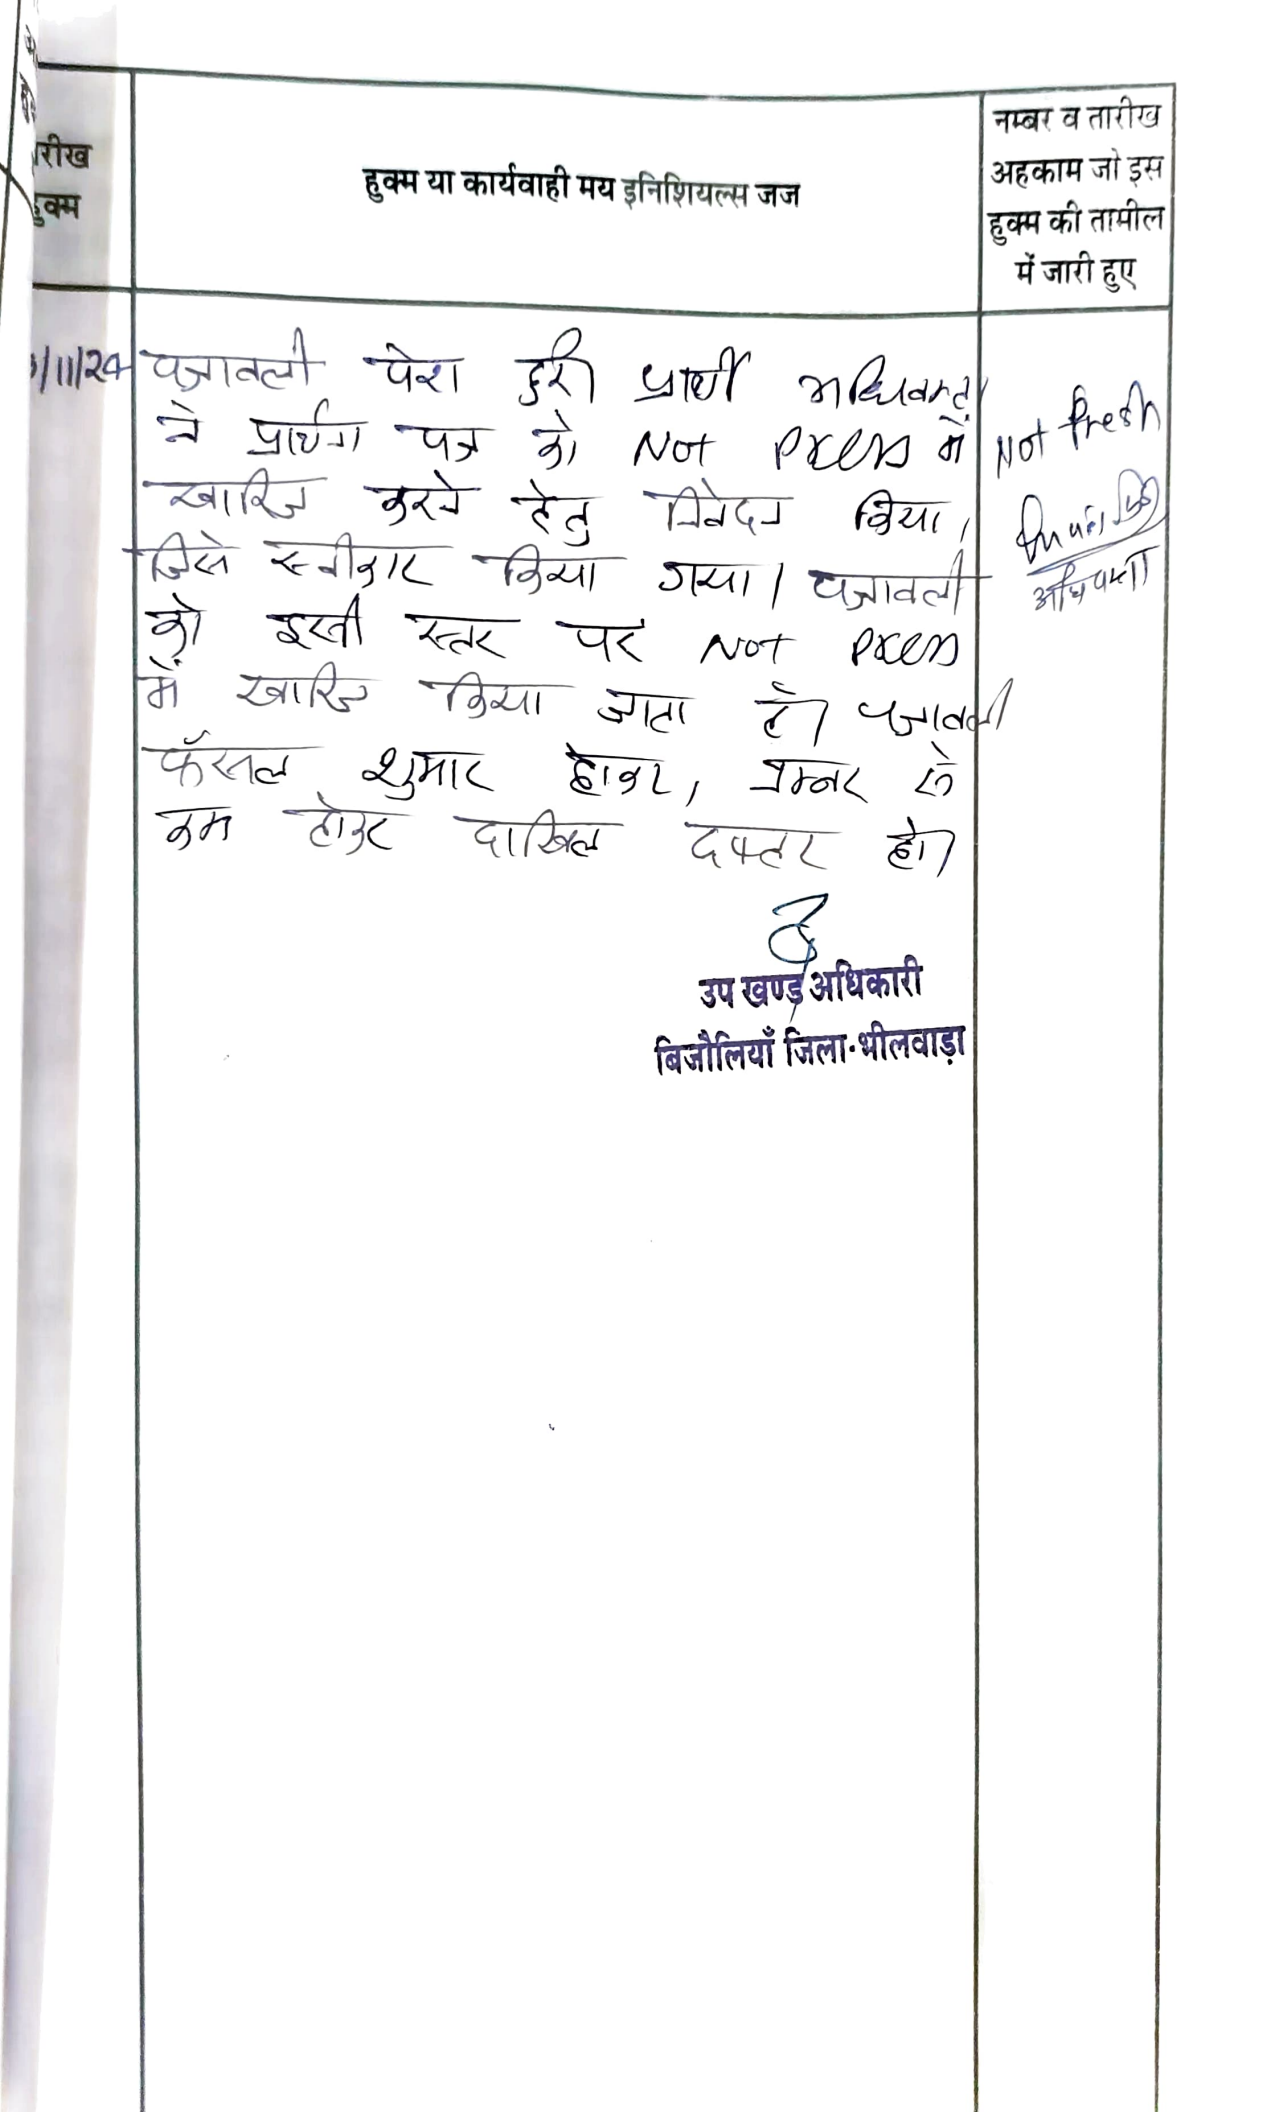 रीख
हुक्म
हुक्म या कार्यवाही मय इनिशियल्स जज
नम्बर व तारीख
अहकाम जो इस
हुक्म की तामील
में जारी हुए
/11/24 पत्रावली पेश हुई। प्रार्थी अधिवक्ता
ने प्रार्थना पत्र को Not Press में
खारिज करने हेतु निवेदन किया,
जिसे स्वीकार किया गया। पत्रावली
को इसी स्तर पर Not Press
में खारिज किया जाता है। पत्रावली
फैसल शुमार होकर, नम्बर से
कम होकर दाखिल दफ्तर हो।
Not Presh
अधिवक्ता
उप खण्ड अधिकारी
बिजौलियाँ जिला-भीलवाड़ा